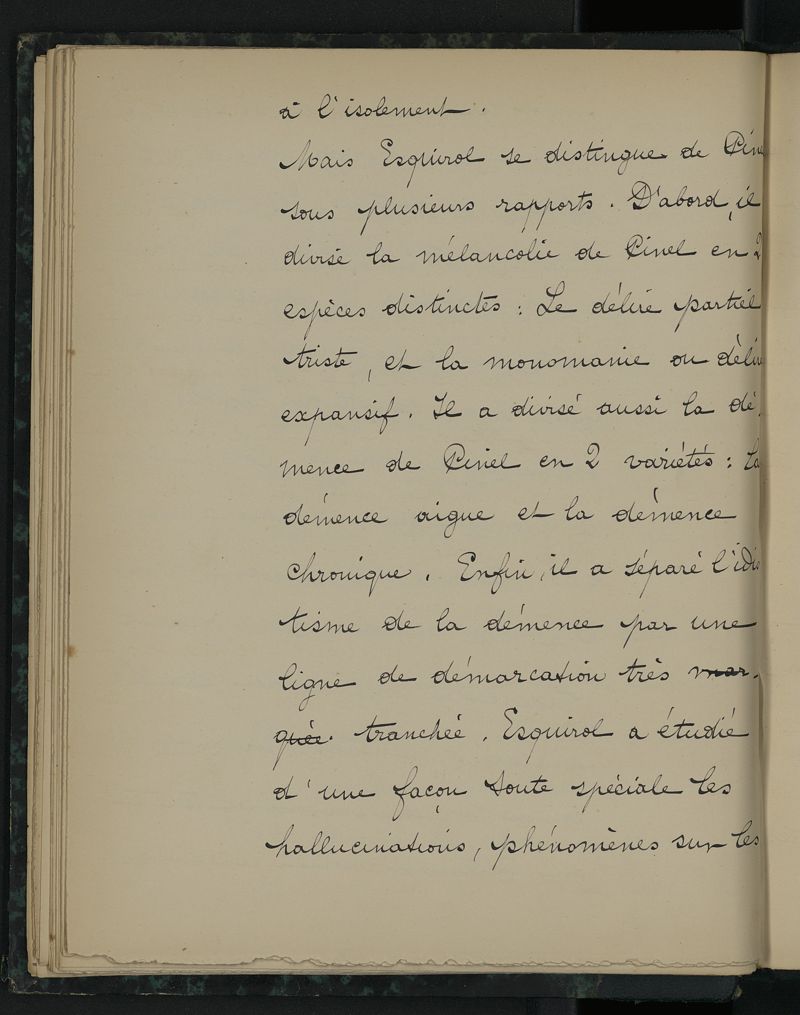 à l'isolement.
Mais Esquirol se distingue de Pin
sous plusieurs rapports. D'abord, il
divise la mélancolie de Pinel en 2
espèces distinctes : Le délire partiel
triste, et la monomanie ou déli
expansif. Il a divisé aussi la dé-
mence de Pinel en 2 variétés : la
démence aigue et la démence
chronique. Enfin, il a séparé l'idi
tisme de la démence par une
ligne de démarcation très mar-
quée. tranchée. Esquirol a étudié
d'une façon toute spéciale les
hallucinations, phénomènes sur les